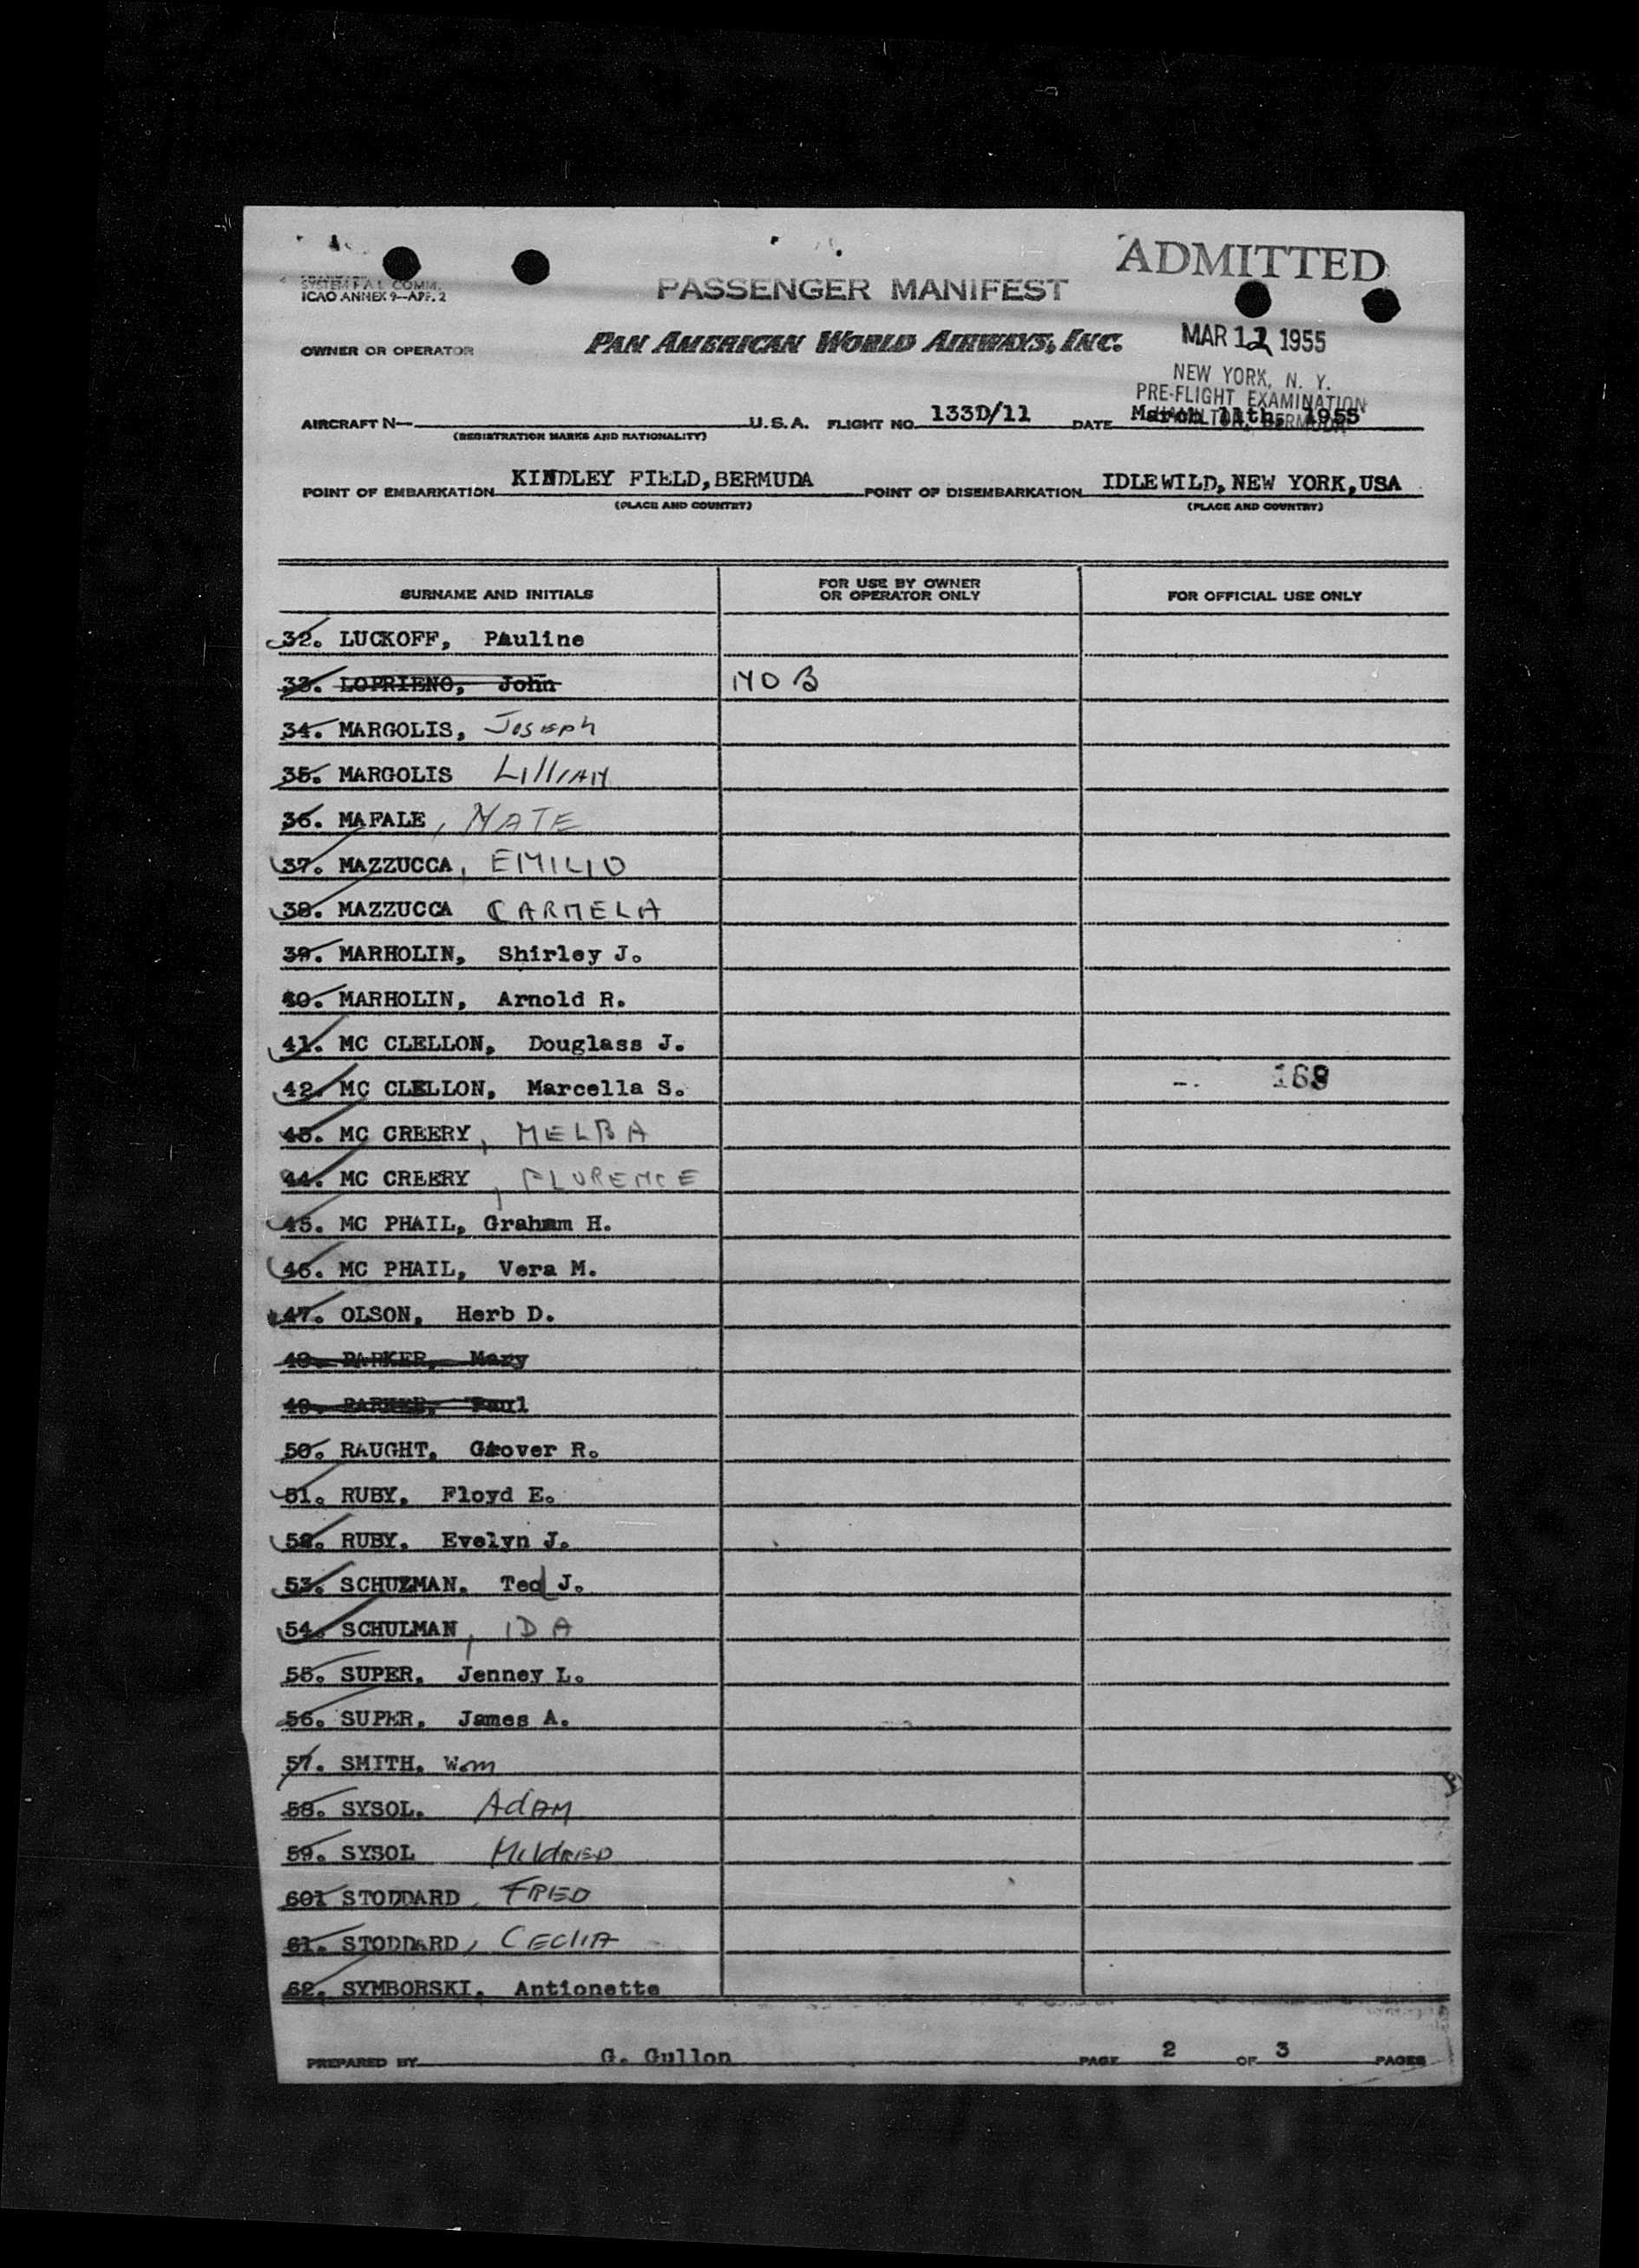 ADMITTED
SYSTEM F.A.L. COMM.
ICAO ANNEX 9—APP. 2
PASSENGER MANIFEST
OWNER OR OPERATOR PAN AMERICAN WORLD AIRWAYS, INC.
MAR 12 1955
NEW YORK, N. Y.
PRE-FLIGHT EXAMINATION
HAMILTON, BERMUDA
AIRCRAFT N— U.S.A. FLIGHT NO. 133D/11 DATE March 11th, 1955
(REGISTRATION MARKS AND NATIONALITY)
POINT OF EMBARKATION KINDLEY FIELD, BERMUDA POINT OF DISEMBARKATION IDLEWILD, NEW YORK, USA
(PLACE AND COUNTRY) (PLACE AND COUNTRY)
SURNAME AND INITIALS FOR USE BY OWNER OR OPERATOR ONLY FOR OFFICIAL USE ONLY
32. LUCKOFF, Pauline
33. LOPRIENO, John NOB
34. MARGOLIS, Joseph
35. MARGOLIS Lillian
36. MAFALE, NATE
37. MAZZUCCA, EMILIO
38. MAZZUCCA CARMELA
39. MARHOLIN, Shirley J.
40. MARHOLIN, Arnold R.
41. MC CLELLON, Douglass J.
42. MC CLELLON, Marcella S. 168
43. MC CREERY, MELBA
44. MC CREERY, FLORENCE
45. MC PHAIL, Graham H.
46. MC PHAIL, Vera M.
47. OLSON, Herb D.
48. PARKER, Mary
49. PARKER, Paul
50. RAUGHT, Grover R.
51. RUBY, Floyd E.
52. RUBY, Evelyn J.
53. SCHULMAN, Ted J.
54. SCHULMAN, IDA
55. SUPER, Jenney L.
56. SUPER, James A.
57. SMITH, Wm
58. SYSOL, Adam
59. SYSOL Mildred
601 STODDARD, FRED
61. STODDARD, Ceclia
62. SYMBORSKI, Antionette
PREPARED BY G. Gullon PAGE 2 OF 3 PAGES